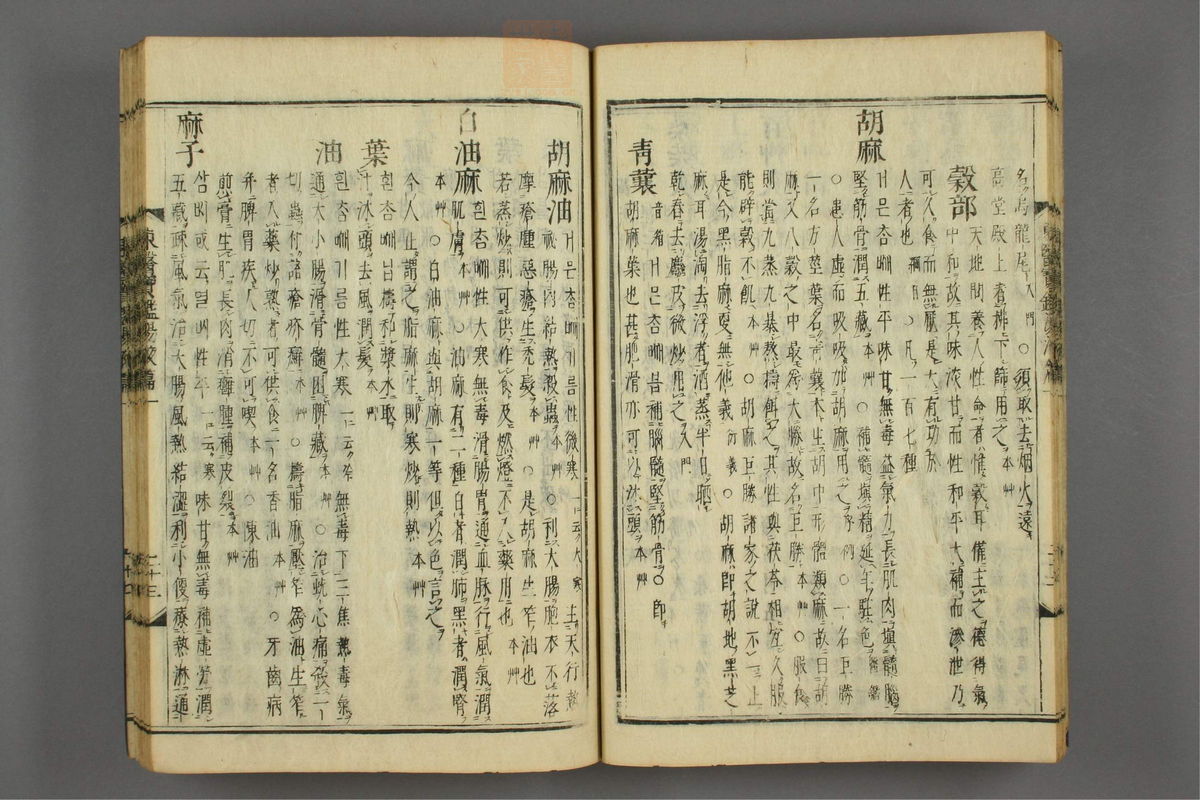 名烏龍尾入門○須取去烟火遠
高堂殿上者拂下篩用之本艸
穀部
天地間養人性命者惟穀耳備土之德得氣
中和故其味淡甘而性和平大補而滲泄乃
可久食而無厭是大有功於
人者也○凡一百七種
胡麻
거믄ᄎᆞᆷᄢᅢ性平味甘無毒益氣力長肌肉塡髓腦
堅筋骨潤五藏本艸○補髓塡精延年駐色
○患人虛而吸吸加胡麻用之序例○一名巨勝
一名方莖葉名靑蘘本生胡中形體類麻故曰胡
麻又八穀之中最爲大勝故名巨勝本艸○服食
則當九蒸九暴熬擣餌之其性與茯苓相宜久服
能辟穀不飢本艸○胡麻巨勝諸家之說不一止
是今黑脂麻更無他義衍義○胡麻卽胡地黑芝
麻耳湯淘去浮者酒蒸半日晒
乾舂去麤皮微炒用之入門
靑蘘
音箱거믄ᄎᆞᆷᄢᅢ닙補腦髓堅筋骨○卽
胡麻葉也甚肥滑亦可以沐頭本艸
胡麻油
거믄ᄎᆞᆷᄢᅢ기름性微寒一云大寒主天行熱
祕腸內結熱殺蟲○利大腸胞衣不落
摩瘡腫惡瘡生禿髮本艸○是胡麻生笮油也
若蒸炒則可供作食及燃燈不入藥用也本艸
白油麻
흰ᄎᆞᆷᄢᅢ性大寒無毒滑腸胃通血脉行風氣潤
肌膚本艸○油麻有二種白者潤肺黑者潤腎
本艸○白油麻與胡麻一等但以色言之
今人止謂之脂麻生則寒炒則熱本艸
葉
흰ᄎᆞᆷᄢᅢ닙擣和漿水取
汁沐頭去風潤髮本艸
油
흰ᄎᆞᆷᄢᅢ기름性大寒一云冷無毒下三焦熱毒氣
通大小腸滑骨髓困脾藏本艸○治蚘心痛殺一
切蟲付諸瘡疥癬本艸○擣脂麻壓笮爲油生笮
者入藥炒熟者可供食一名香油本艸○牙齒病
幷脾胃疾人切不可喫本艸○陳油
煎膏生肌長肉消癰腫補皮裂本艸
麻子
삼ᄡᅵ或云열ᄡᅵ性平一云寒味甘無毒補虛勞潤
五藏疎風氣治大腸風熱結澁利小便療熱淋通